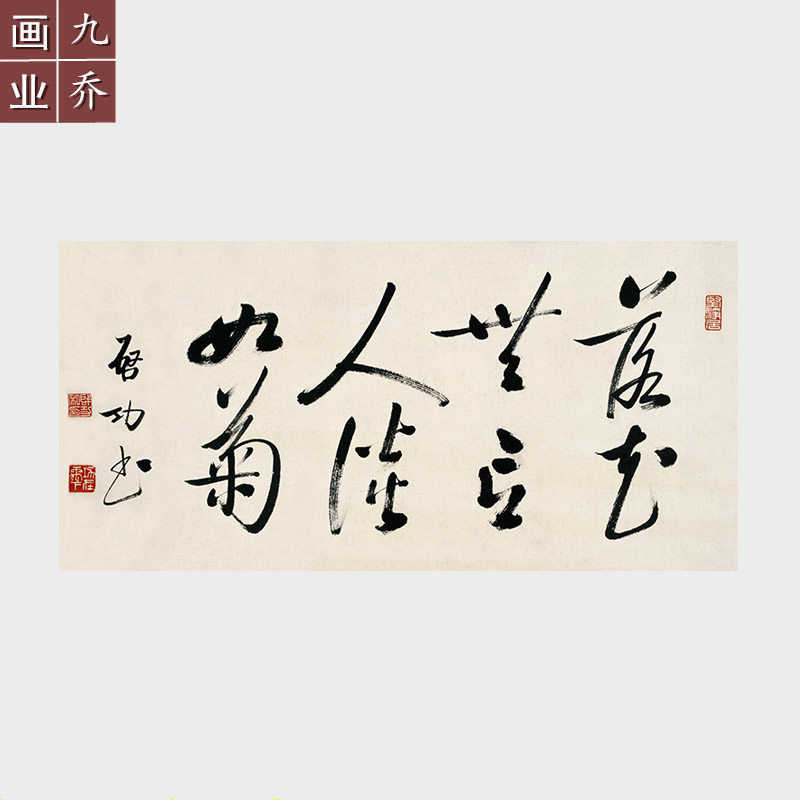 九乔
画业
落花
無言
人淡
如菊
啓功书